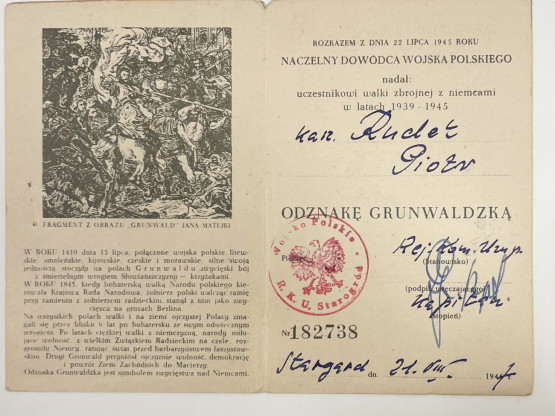 FRAGMENT Z OBRAZU „GRUNWALD" JANA MATEJKI
W ROKU 1410 dnia 15 lipca, połączone wojska polskie, litewskie, smoleńskie, kijowskie, czeskie i morawskie, silne swoją
jednością stoczyły na polach Grunwaldu zwycięski bój
z śmiertelnym wrogiem Słowiańszczyzny — krzyżakami.
W ROKU 1945, kiedy bohaterską walką Narodu polskiego kierowała Krajowa Rada Narodowa, żołnierz polski walcząc ramię
przy ramieniu z żołnierzem radzieckim, stanął z nim jako zwycięzca na gruzach Berlina.
Na wszystkich polach walki i na ziemi ojczystej Polacy zmagali się przez blisko 6 lat po bohatersku ze swym odwiecznym
wrogiem. Po latach ciężkiej walki z niemczyzną, narody miłujące wolność, z wielkim Związkiem Radzieckim na czele, rozgromiły Niemcy, ratując świat przed barbarzyństwem faszystowskim. Drugi Grunwald przyniósł ojczyźnie wolność, demokrację
i powrót Ziem Zachodnich do Macierzy.
Odznaka Grunwaldzka jest symbolem zwycięstwa nad Niemcami.
ROZKAZEM Z DNIA 22 LIPCA 1945 ROKU
NACZELNY DOWÓDCA WOJSKA POLSKIEGO
nadał:
uczestnikowi walki zbrojnej z niemcami
w latach 1939 - 1945
kan. Rudek
Piotr
ODZNAKĘ GRUNWALDZKĄ
Wojsko Polskie
R. K. U. Starogród
Rej. Kom. Uzup.
(Stanowisko)
(podpis wręczającego)
Kapitan
(stopień)
Nr 182738
Stargard dn. 21. VIII 1947